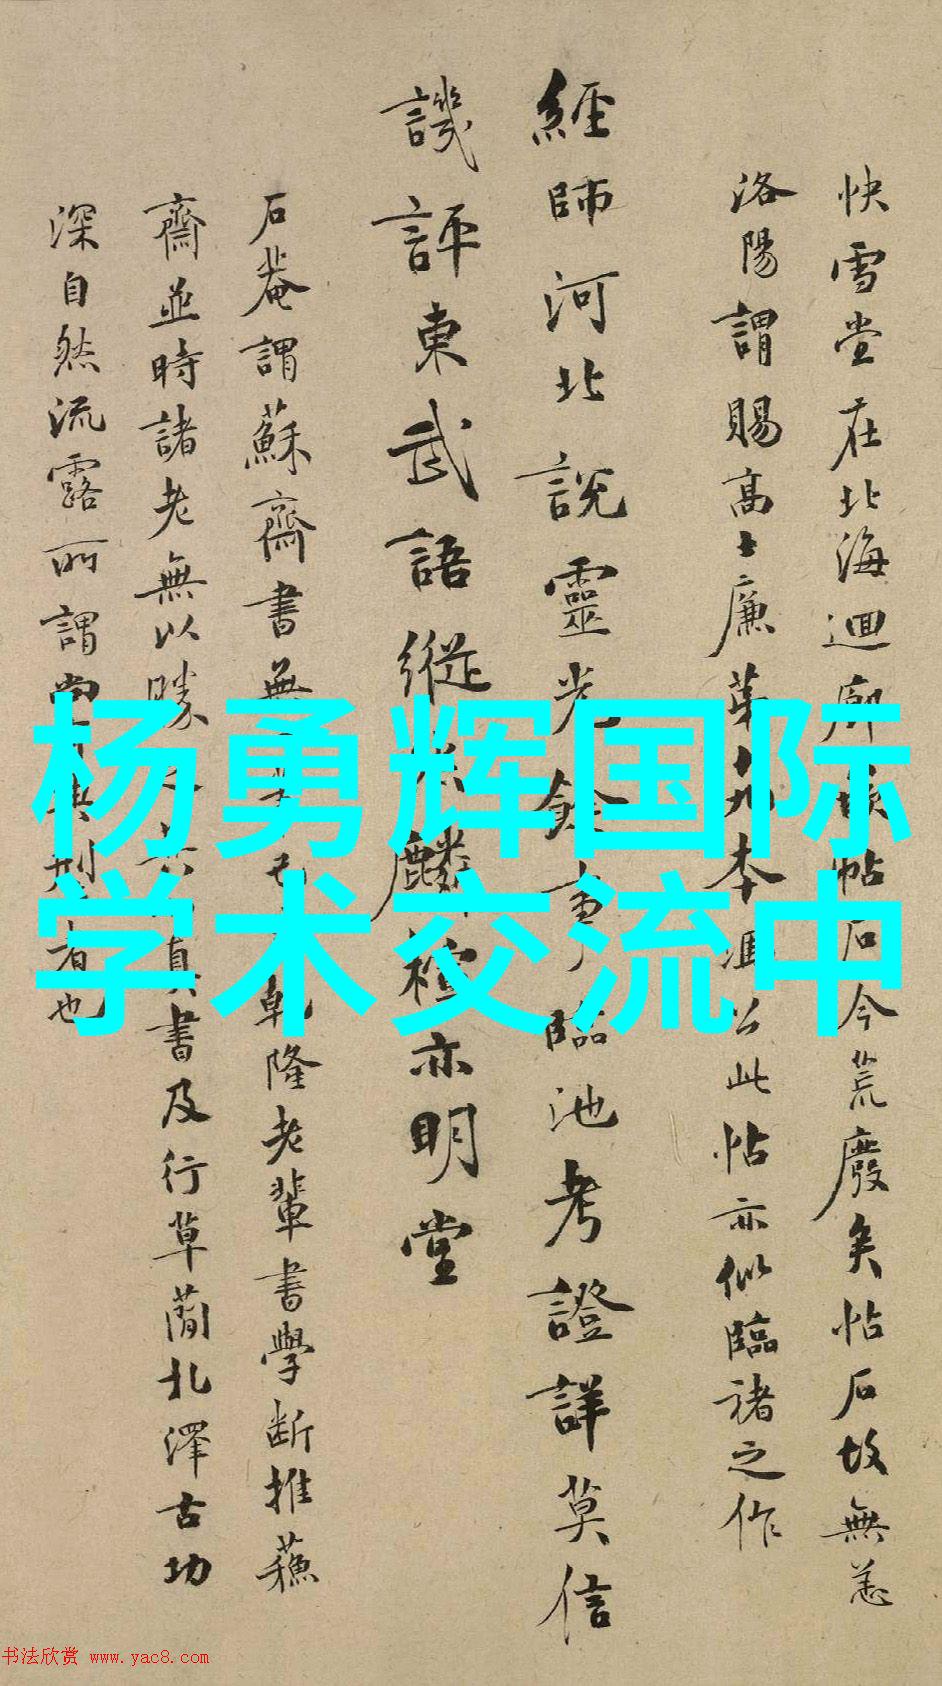 快雪堂在北海迴廊帖石今荒廢矣帖石故無恙
洛陽謂賜高士廉第九本馮公此帖亦似臨褚之作
經師河北說靈光餘事臨池考證詳莫信
譏評東武語縱麟楦亦明堂
石菴謂蘇齋書無乾隆老輩書學斷推蘇
齋並時諸老無以勝真書及行草蘭北澤古功
深自然流露所謂典刑者也
杨勇辉国际
学术交流中
书法欣赏 www.yac8.com